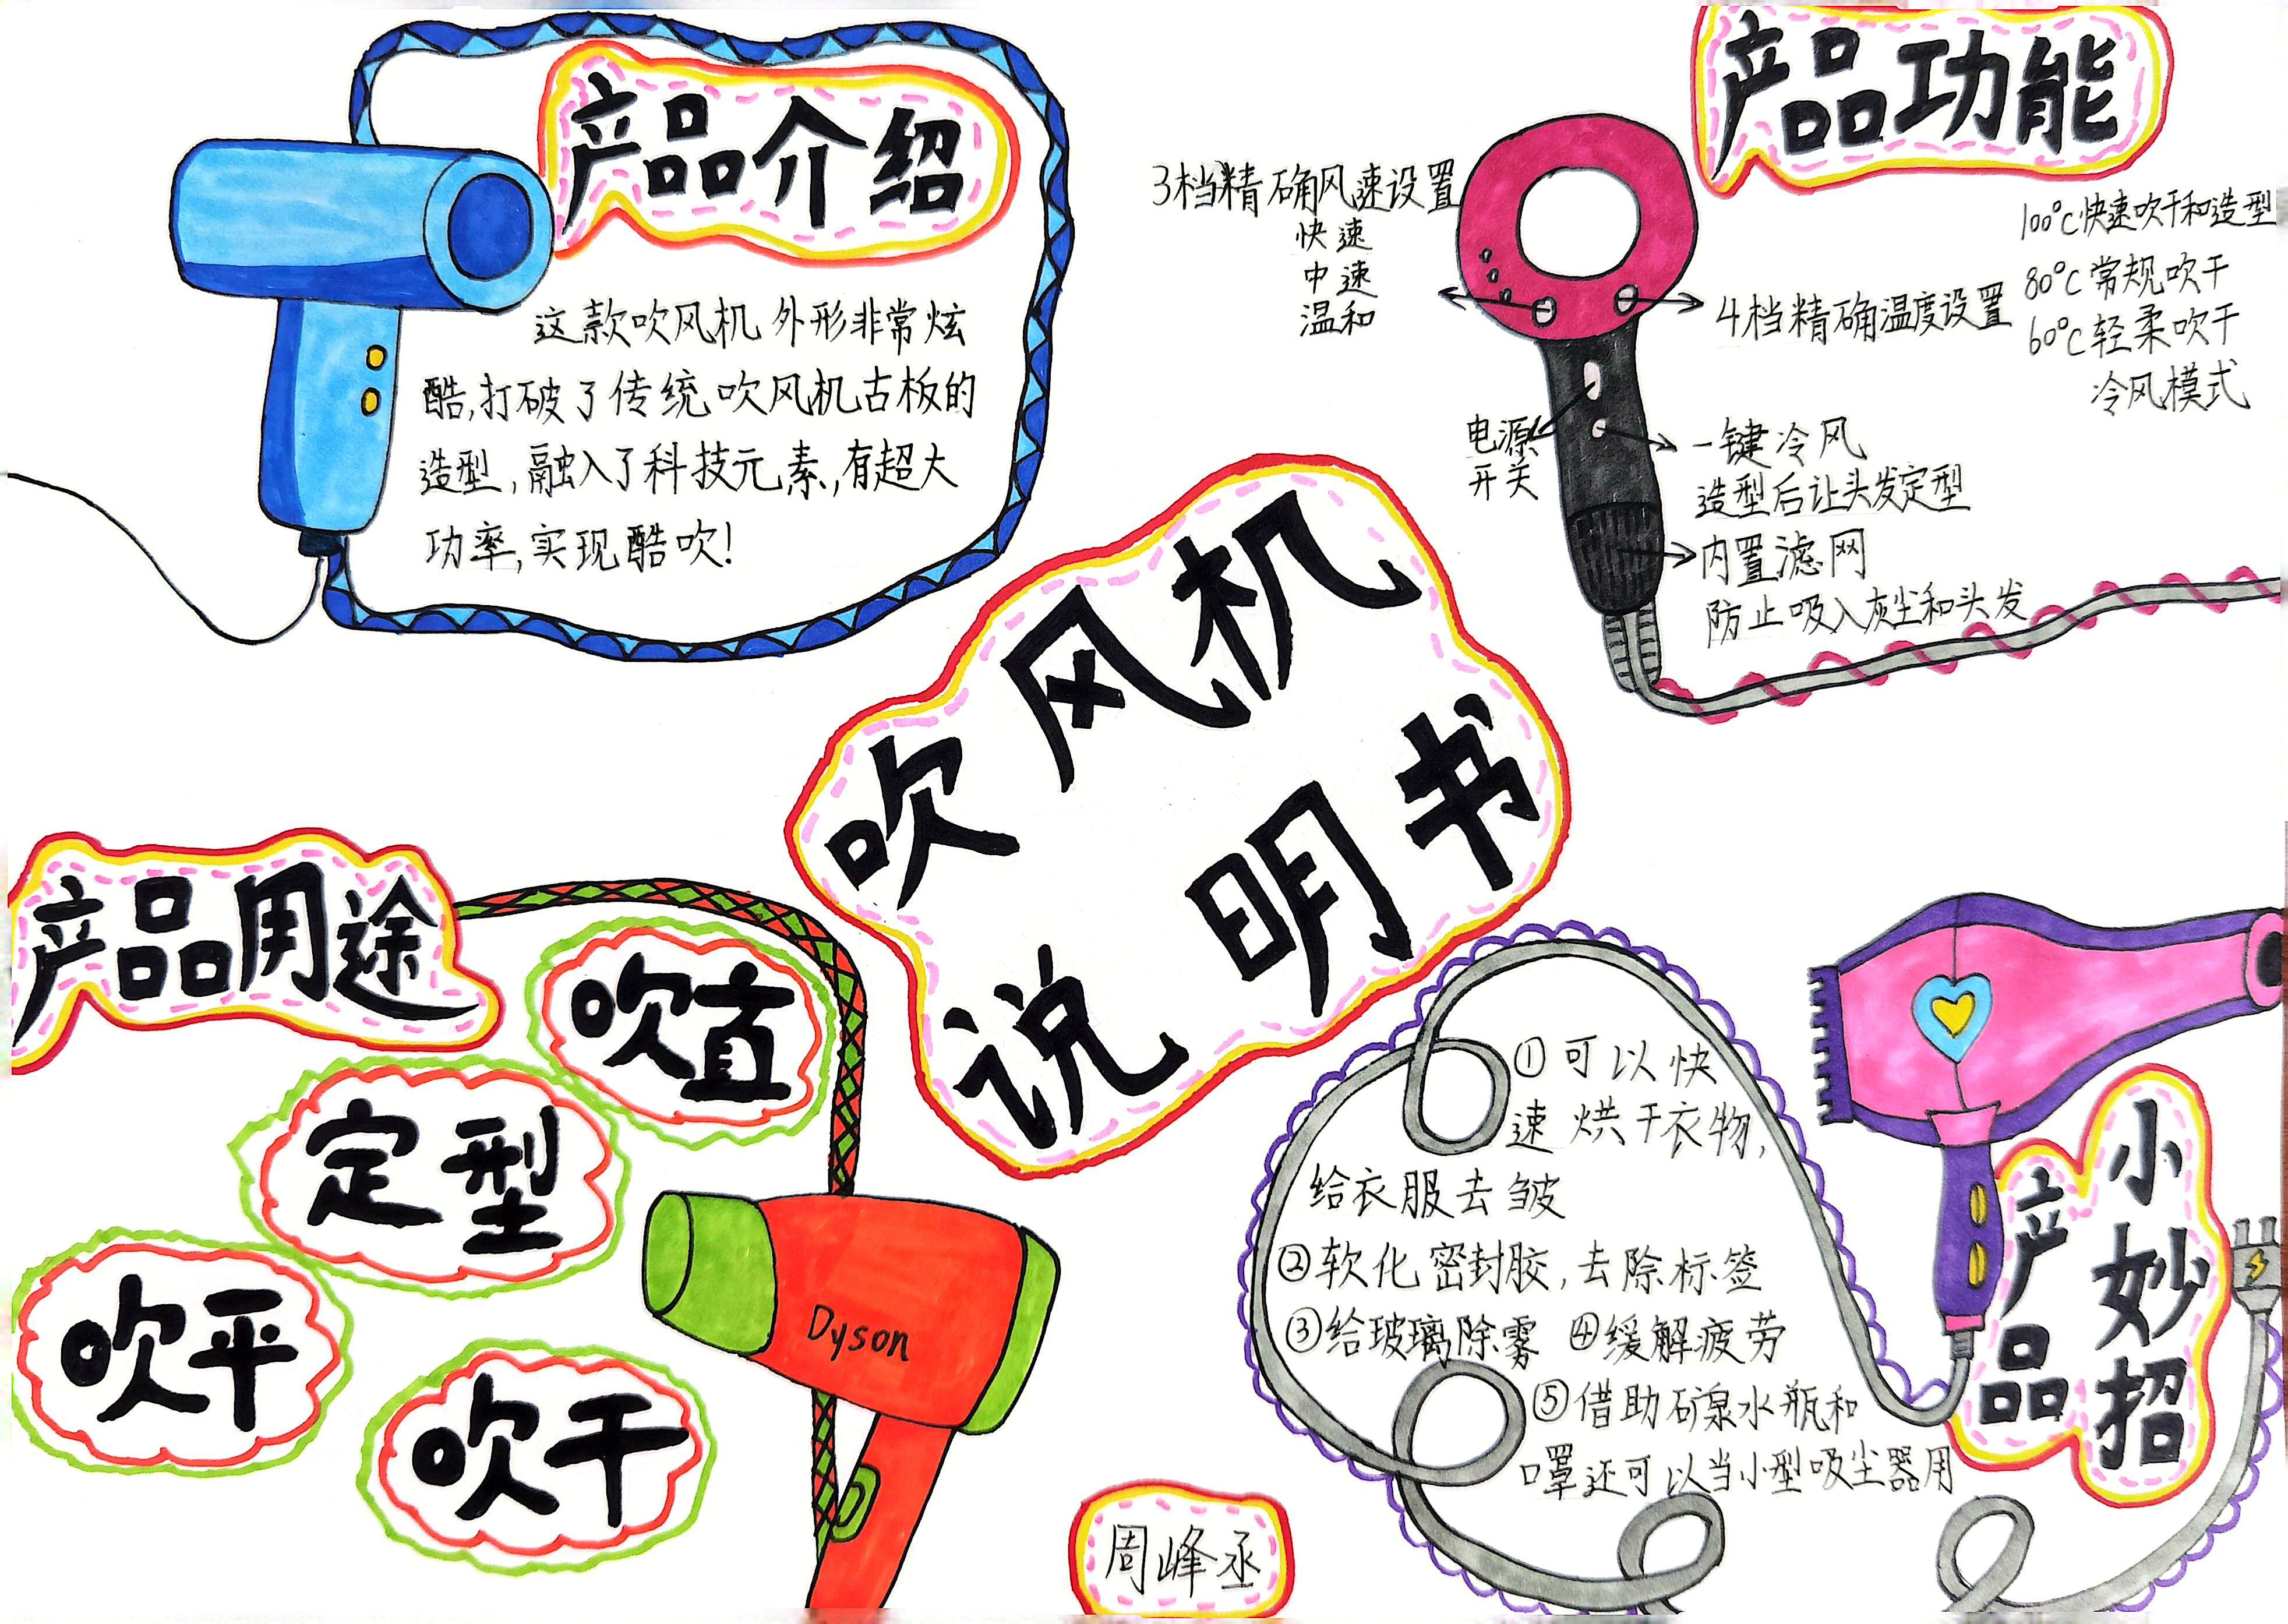 产品介绍
这款吹风机外形非常炫
酷,打破了传统吹风机古板的
造型,融入了科技元素,有超大
功率,实现酷吹!
产品功能
3档精确风速设置
快速
中速
温和
4档精确温度设置
100°C快速吹干和造型
80°C常规吹干
60°C轻柔吹干
冷风模式
电源
开关
一键冷风
造型后让头发定型
内置滤网
防止吸入灰尘和头发
吹风机
说明书
产品用途
吹直
定型
吹平
吹干
Dyson
产品
小妙招
①可以快
速烘干衣物,
给衣服去皱
②软化密封胶,去除标签
③给玻璃除雾 ④缓解疲劳
⑤借助矿泉水瓶和
口罩还可以当小型吸尘器用
周峰丞